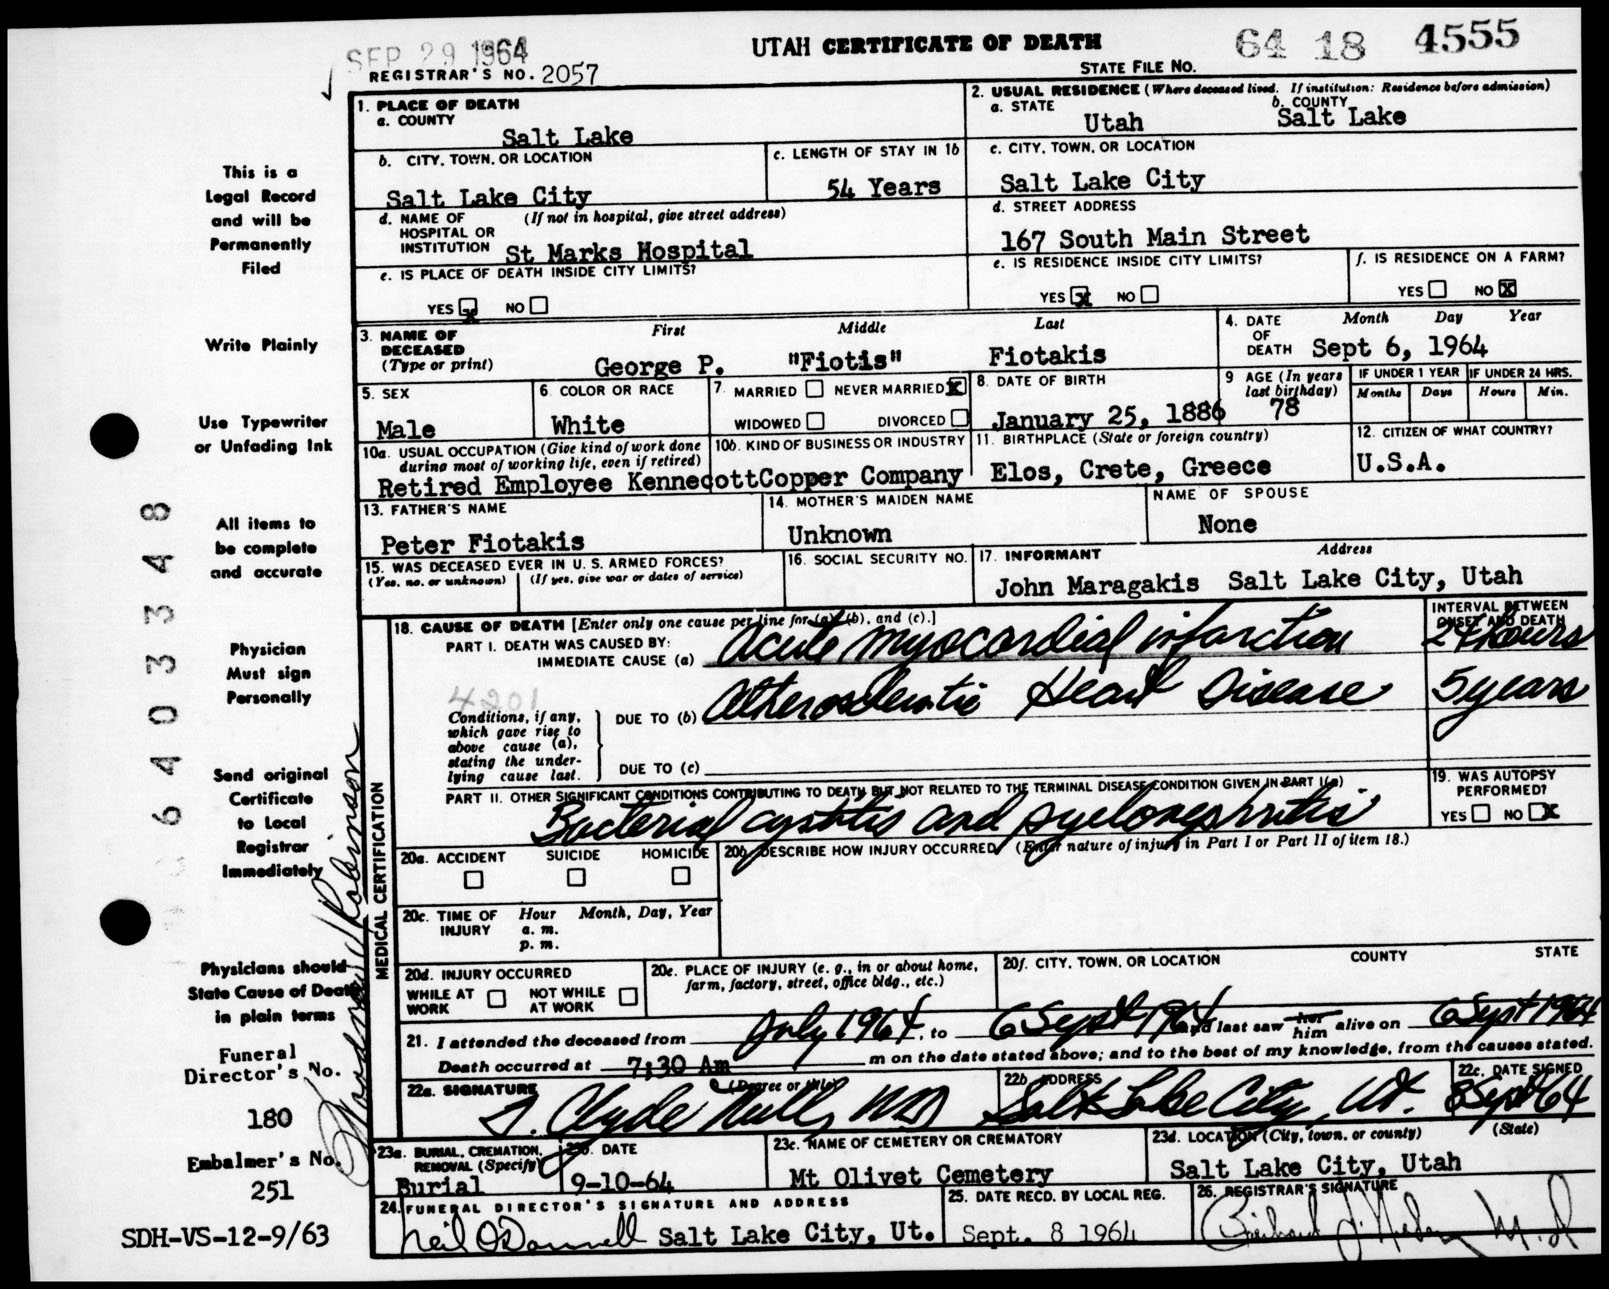 SEP 29 1964
UTAH CERTIFICATE OF DEATH
64 18 4555
REGISTRAR'S NO. 2057
STATE FILE NO.
1. PLACE OF DEATH
a. COUNTY
Salt Lake
2. USUAL RESIDENCE (Where deceased lived. If institution: Residence before admission)
a. STATE
Utah
b. COUNTY
Salt Lake
b. CITY, TOWN, OR LOCATION
Salt Lake City
c. LENGTH OF STAY IN 1b
54 Years
c. CITY, TOWN, OR LOCATION
Salt Lake City
d. NAME OF HOSPITAL OR INSTITUTION
(If not in hospital, give street address)
St Marks Hospital
d. STREET ADDRESS
167 South Main Street
e. IS PLACE OF DEATH INSIDE CITY LIMITS?
YES X NO
e. IS RESIDENCE INSIDE CITY LIMITS?
YES X NO
f. IS RESIDENCE ON A FARM?
YES NO X
3. NAME OF DECEASED
(Type or print)
First Middle Last
George P. "Fiotis" Fiotakis
4. DATE OF DEATH
Month Day Year
Sept 6, 1964
5. SEX
Male
6. COLOR OR RACE
White
7. MARRIED NEVER MARRIED X
WIDOWED DIVORCED
8. DATE OF BIRTH
January 25, 1886
9 AGE (In years last birthday)
78
IF UNDER 1 YEAR
Months Days
IF UNDER 24 HRS.
Hours Min.
10a. USUAL OCCUPATION (Give kind of work done during most of working life, even if retired)
10b. KIND OF BUSINESS OR INDUSTRY
Retired Employee Kennecott Copper Company
11. BIRTHPLACE (State or foreign country)
Elos, Crete, Greece
12. CITIZEN OF WHAT COUNTRY?
U.S.A.
13. FATHER'S NAME
Peter Fiotakis
14. MOTHER'S MAIDEN NAME
Unknown
NAME OF SPOUSE
None
15. WAS DECEASED EVER IN U. S. ARMED FORCES?
(Yes, no, or unknown) (If yes, give war or dates of service)
16. SOCIAL SECURITY NO.
17. INFORMANT Address
John Maragakis Salt Lake City, Utah
18. CAUSE OF DEATH [Enter only one cause per line for (a), (b), and (c).]
PART I. DEATH WAS CAUSED BY:
IMMEDIATE CAUSE (a) Acute myocardial infarction
INTERVAL BETWEEN ONSET AND DEATH
24 hours
4201
Conditions, if any, which gave rise to above cause (a), stating the underlying cause last.
DUE TO (b) Atherosclerotic Heart Disease
5 years
DUE TO (c)
PART II. OTHER SIGNIFICANT CONDITIONS CONTRIBUTING TO DEATH BUT NOT RELATED TO THE TERMINAL DISEASE CONDITION GIVEN IN PART I(a)
Bacterial cystitis and pyelonephritis
19. WAS AUTOPSY PERFORMED?
YES NO X
20a. ACCIDENT SUICIDE HOMICIDE
20b. DESCRIBE HOW INJURY OCCURRED (Enter nature of injury in Part I or Part II of item 18.)
20c. TIME OF INJURY
Hour Month, Day, Year
a. m.
p. m.
20d. INJURY OCCURRED
WHILE AT WORK NOT WHILE AT WORK
20e. PLACE OF INJURY (e. g., in or about home, farm, factory, street, office bldg., etc.)
20f. CITY, TOWN, OR LOCATION COUNTY STATE
21. I attended the deceased from July 1964, to 6 Sept 1964 and last saw her him alive on 6 Sept 1964
Death occurred at 7;30 Am m on the date stated above; and to the best of my knowledge, from the causes stated.
22a. SIGNATURE (Degree or title)
Clyde MD
22b. ADDRESS
Salt Lake City, Ut.
22c. DATE SIGNED
8 Sept 64
23a. BURIAL, CREMATION, REMOVAL (Specify)
Burial
23b. DATE
9-10-64
23c. NAME OF CEMETERY OR CREMATORY
Mt Olivet Cemetery
23d. LOCATION (City, town, or county) (State)
Salt Lake City, Utah
24. FUNERAL DIRECTOR'S SIGNATURE AND ADDRESS
Neil O'Donnell Salt Lake City, Ut.
25. DATE RECD. BY LOCAL REG.
Sept. 8 1964
26. REGISTRAR'S SIGNATURE
M.D
MEDICAL CERTIFICATION
This is a
Legal Record
and will be
Permanently
Filed
Write Plainly
Use Typewriter
or Unfading Ink
All items to
be complete
and accurate
Physician
Must sign
Personally
Send original
Certificate
to Local
Registrar
Immediately
Physicians should
State Cause of Death
in plain terms
Funeral
Director's No.
180
Embalmer's No.
251
SDH-VS-12-9/63
64033348
Robinson